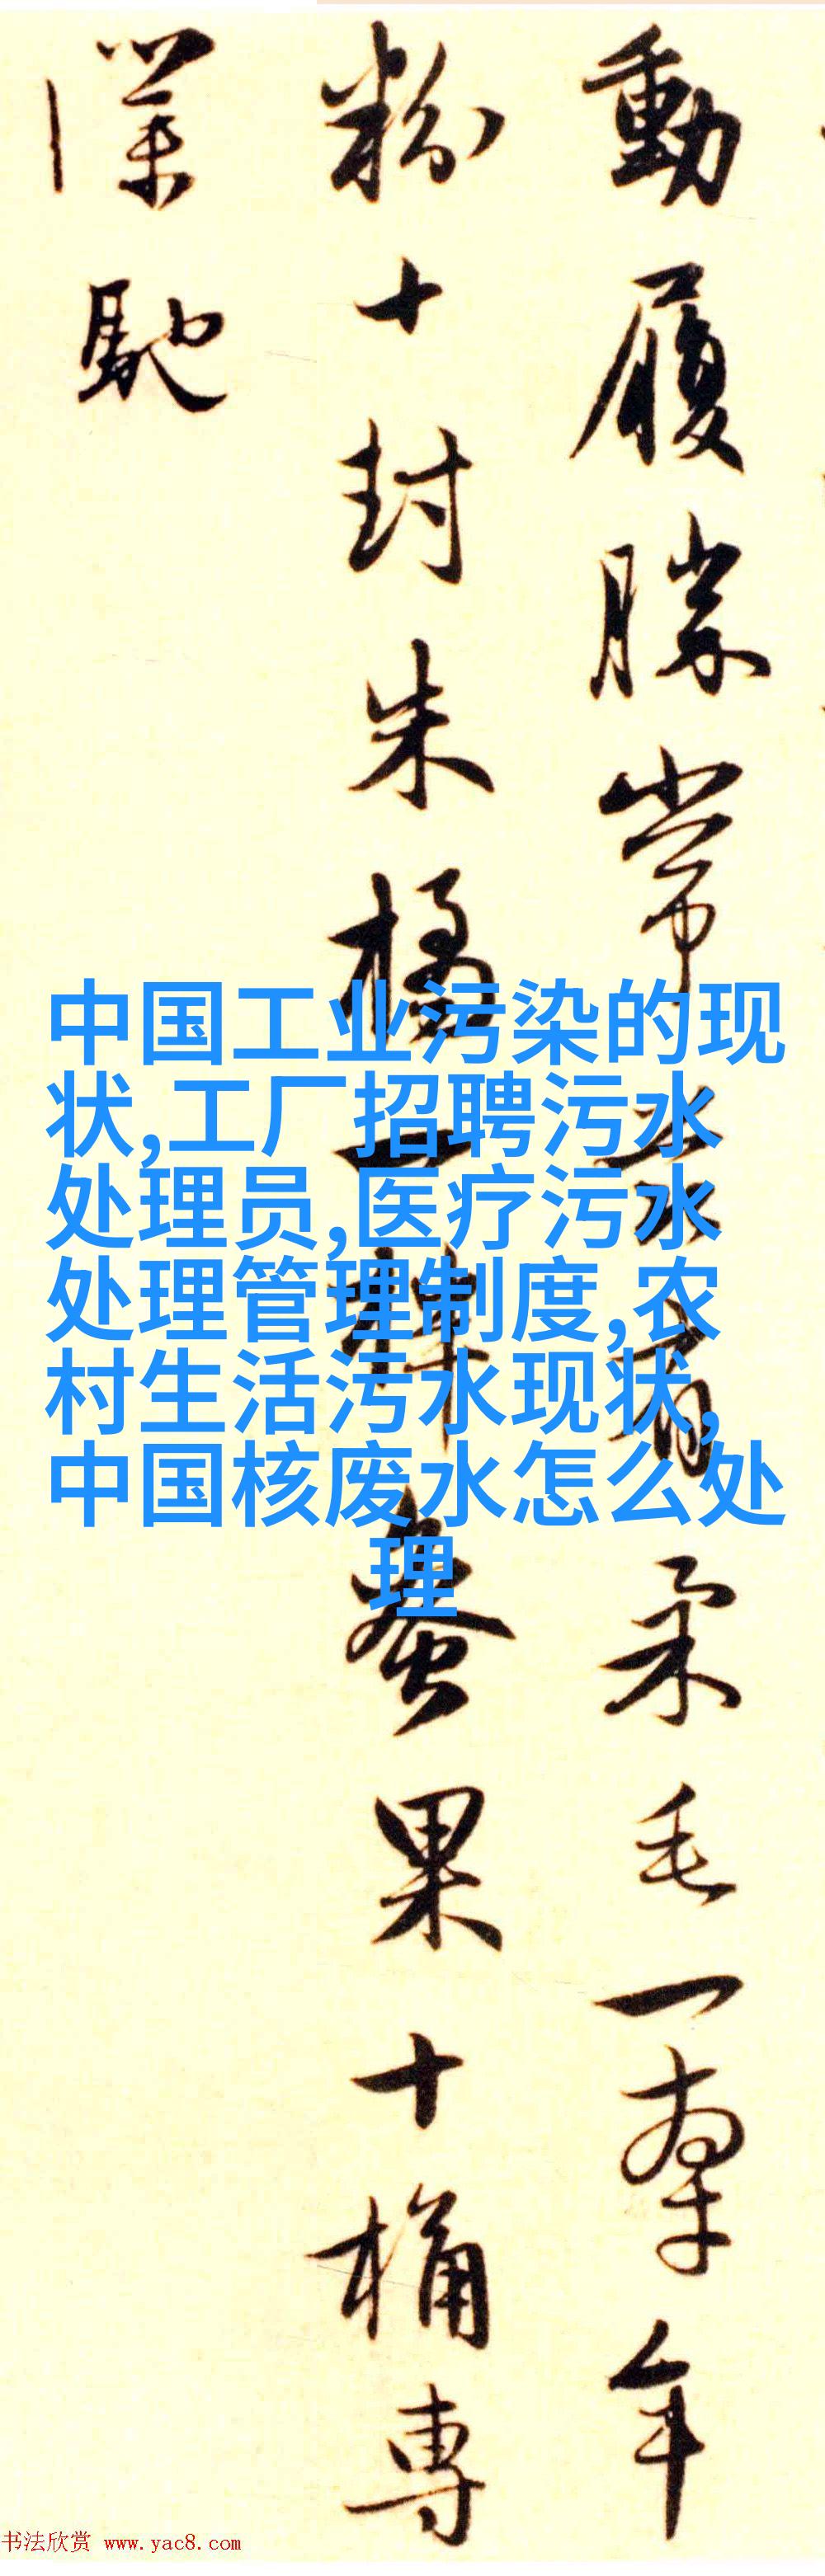 動履勝常
柔毛一羣年
粉十封朱橘
蚕果十桶專
馳
中国工业污染的现
状,工厂招聘污水
处理员,医疗污水
处理管理制度,农
村生活污水现状,
中国核废水怎么处
理
书法欣赏 www.yac8.com